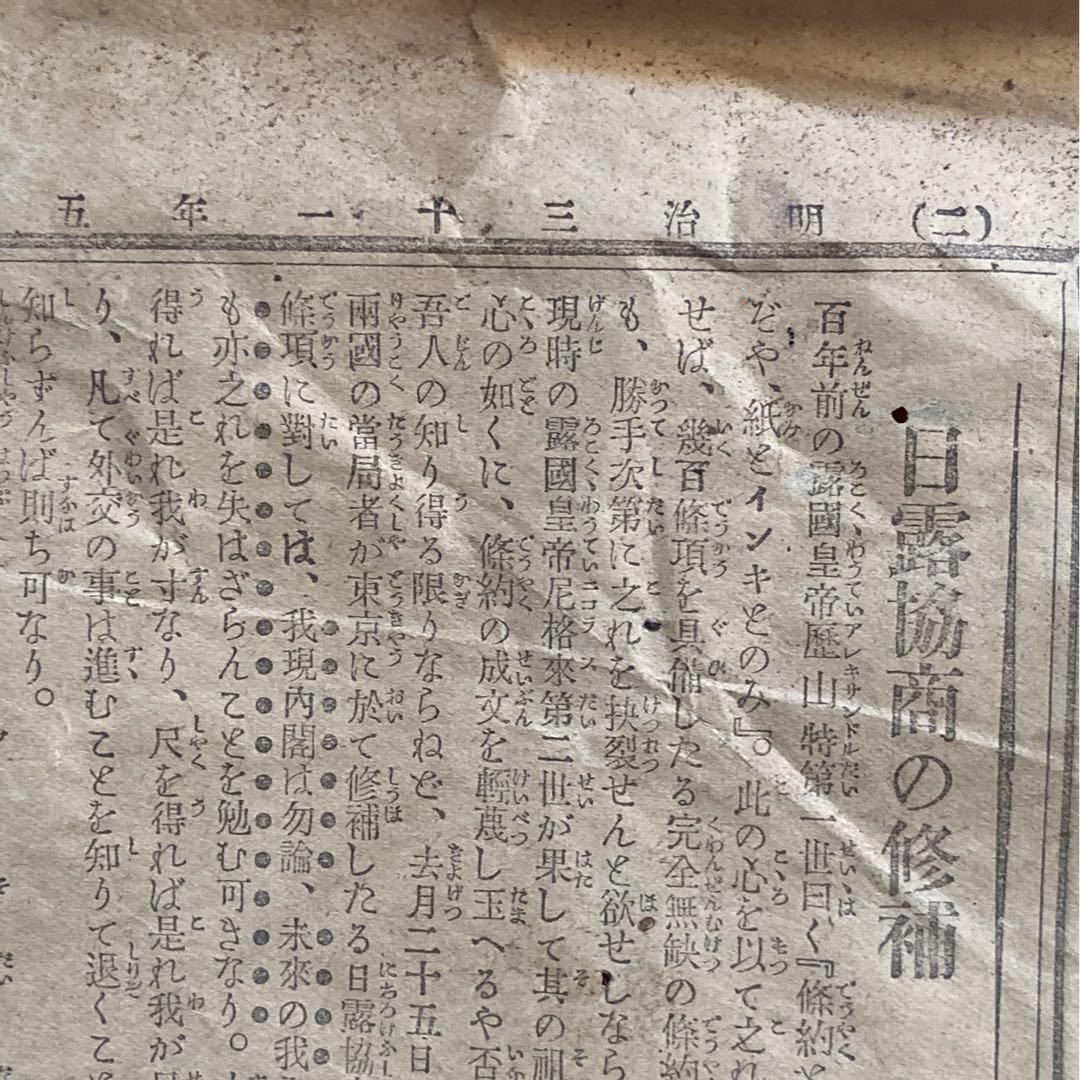 (二) 明治三十一年五
日露協商の修補
百年前の露國皇帝歴山特第一世曰く『條約と
だや、紙とインキとのみ』。此の心を以て之れ
せば、幾百條項を具備したる完全無缺の條約
も、勝手次第に之れを抉裂せんと欲せしなら
現時の露國皇帝尼格來第二世が果して其の祖
心の如くに、條約の成文を輕蔑し玉へるや否
吾人の知り得る限りならねど、去月二十五日
兩國の當局者が東京に於て修補したる日露協
條項に對しては、我現內閣は勿論、未來の我
も亦之れを失はざらんことを勉む可きなり。
得れば是れ我が寸なり、尺を得れば是れ我が
り、凡て外交の事は進むことを知りて退くこ
知らずんば則ち可なり。